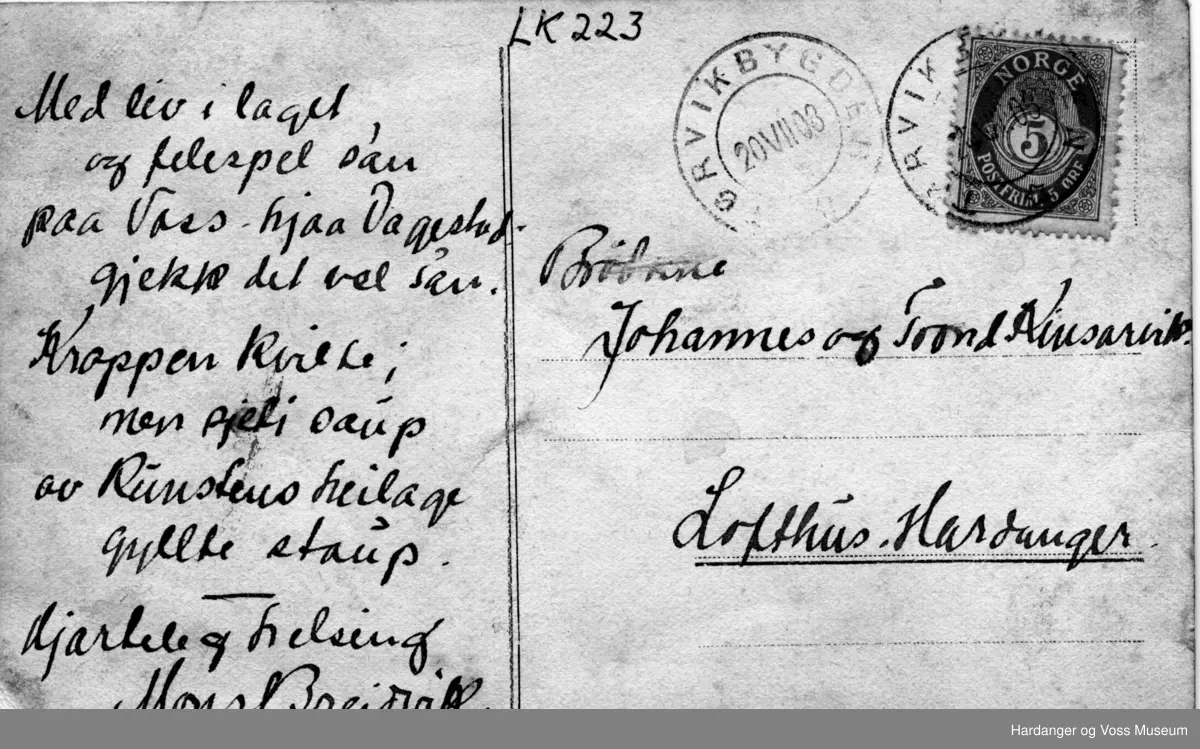 LK 223
Med liv i laget
og felespel sån
paa Voss hjaa Dagestad
gjekk det vel sån.
Kroppen kvilte;
men sjeli saup
av Kunstens heilage
gyllte staup.
Hjarteleg helsing
Mons Breidvik.
NORGE
5
POSTFRIM. 5 ØRE
RVIKBYGDEN
20 VII 03
RVIK
Brødrene
Johannes og Trond Kinsarvik.
Lofthus. Hardanger.
Hardanger og Voss Museum